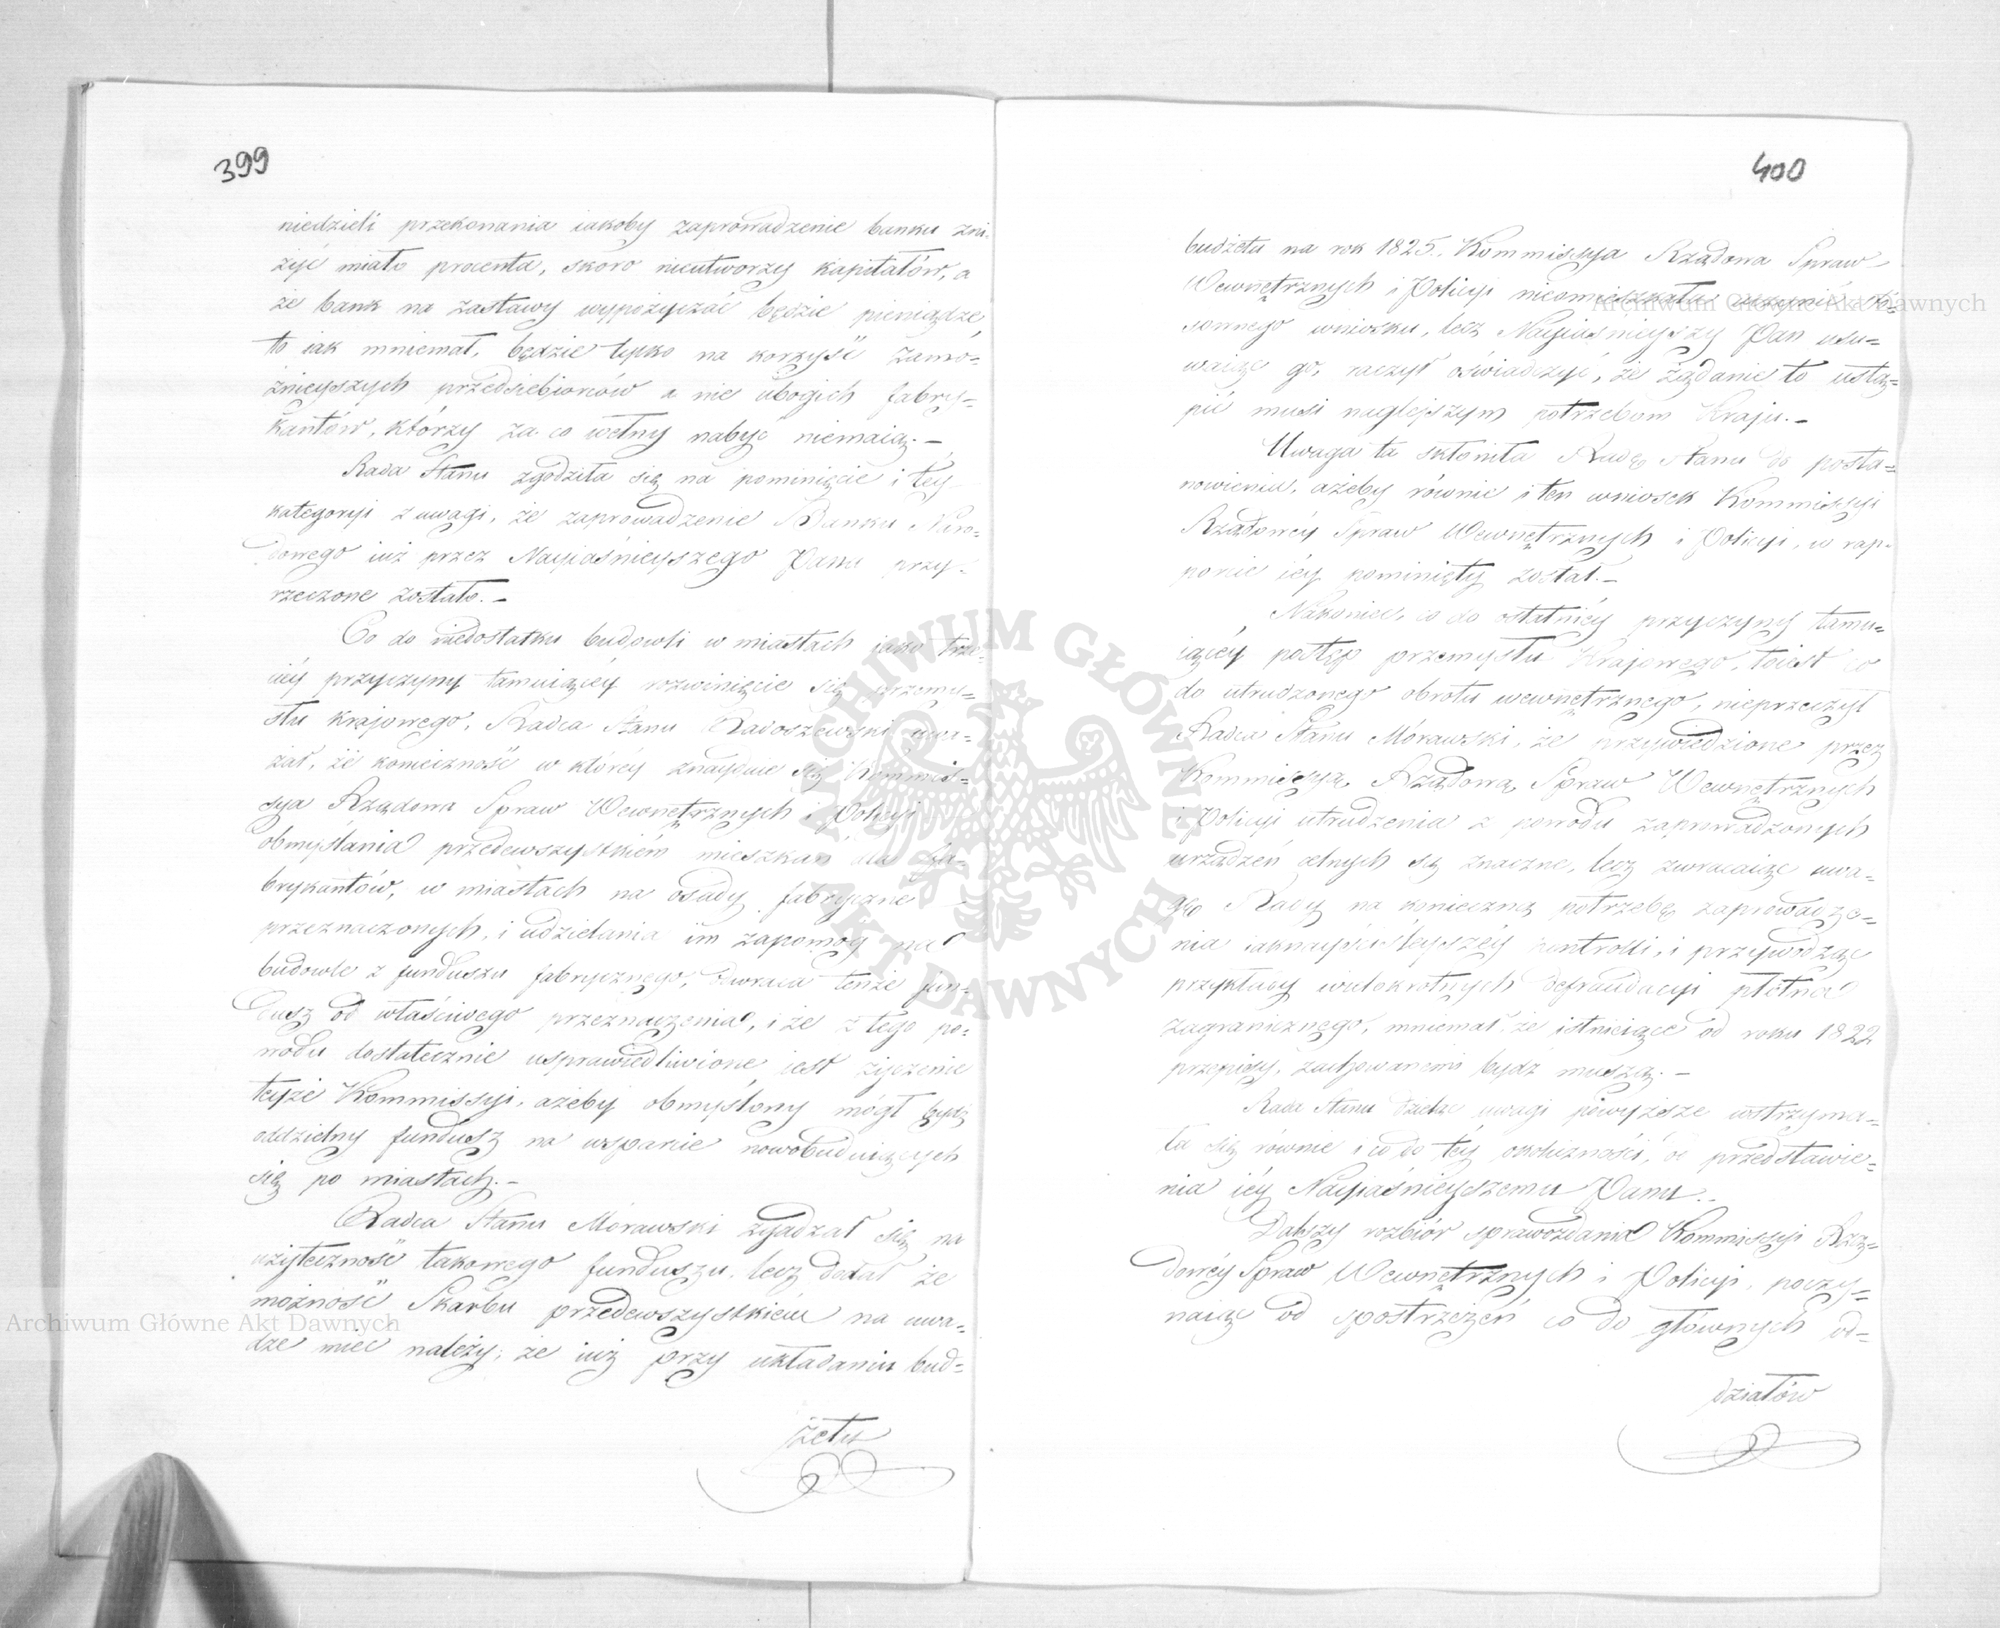 399
niedzieli przekonania iakoby zaprowadzenie banku zni-
żyć miało procenta, skoro nieutworzy kapitałów, a
że bank na zastawy wypożyczać będzie pieniądze,
to iak mniemał, będzie tylko na korzyść zamo-
żnieyszych przedsiebiorców a nie ubogich fabry-
kantów, którzy za co wełny nabyć niemaią.-
Rada Stanu zgodziła się na pominięcie i téy
kategoryi z uwagi, że zaprowadzenie Banku Naro-
dowego iuż przez Nayiaśnieyszego Pana przy-
rzeczone zostało.-
Co do niedostatku budowli w miastach jako trze-
ciéy przyczyny tamuiącéy rozwinięcie się przemy-
słu krajowego, Radca Stanu Radoszewski uwa-
żał, że konieczność w któréy znayduie się Kommis-
sya Rządowa Spraw Wewnętrznych i Policyi
obmyślania przedewszystkiém mieszkań dla fa-
brykantów, w miastach na osady fabryczne
przeznaczonych, i udzielania im zapomóg na
budowle z funduszu fabrycznego, odwraca tenże fun-
dusz od właściwego przeznaczenia, i że z tego po-
wodu dostatecznie usprawiedliwione iest życzenie
teyże Kommissyi, ażeby obmyślony mógł bydź
oddzielny fundusz na wsparcie nowobuduiących
się po miastach.-
Radca Stanu Morawski zgadzał się na
użyteczność takowego funduszu, lecz dodał że
możność Skarbu przedewszystkiém na uwa-
dze mieć należy; że iuż przy układaniu bud-
żetu
400
budżetu na rok 1825. Kommissya Rządowa Spraw
Wewnętrznych i Policyi nieomieszkała uczynić sto-
sownego wniosku, lecz Nayiaśnieyszy Pan usu-
waiąc go, raczył oświadczyć, że żądanie to ustą-
pić musi naglejszym potrzebom Kraju.-
Uwaga ta skłoniła Radę Stanu do posta-
nowienia, ażeby równie i ten wniosek Kommissyi
Rządowéy Spraw Wewnętrznych i Policyi, w rap-
porcie iéy pominięty został.-
Nakoniec, co do ostatniéy przyczyny tamu-
iącéy postęp przemysłu Krajowego, toiest co
do utrudzonego obrotu wewnętrznego, nieprzeczył
Radca Stanu Morawski, że przywiedzione przez
Kommissyą Rządową Spraw Wewnętrznych
i Policyi utrudzenia z powodu zaprowadzonych
urządzeń celnych są znaczne, lecz zwracaiąc uwa-
gę Rady na konieczną potrzebę zaprowadze-
nia iaknayściśleyszéy kontrolli, i przywodząc
przykłady wielokrotnych defraudacyi płótna
zagranicznego, mniemał, że istnieiące od roku 1822
przepisy, zachowanemi bydź muszą.-
Rada Stanu dzieląc uwagi powyższe wstrzyma-
ła się równie i co do téy okoliczności, od przedstawie-
nia iéy Nayiaśnieyszemu Panu.-
Dalszy rozbiór sprawozdania Kommissyi Rzą-
dowéy Spraw Wewnętrznych i Policyi, poczy-
naiąc od spostrzeżeń co do głównych od-
działów
Archiwum Główne Akt Dawnych
Archiwum Główne Akt Dawnych
ARCHIWUM GŁÓWNE AKT DAWNYCH